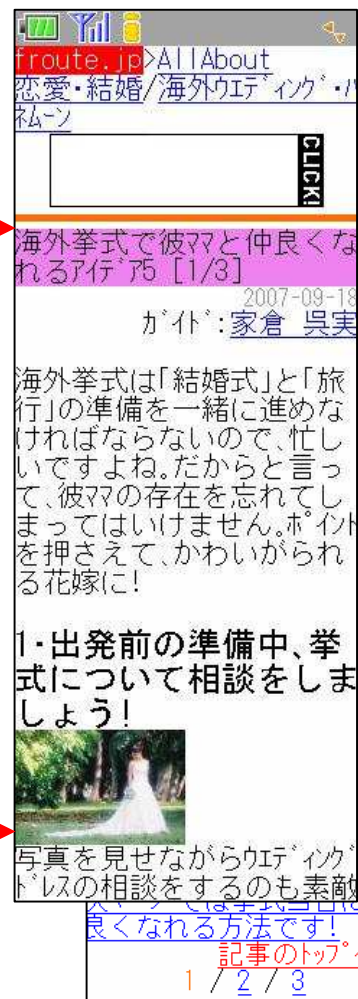 froute.jp>AllAbout
恋愛・結婚/海外ｳｴﾃﾞｨﾝｸﾞ・ﾊ
ﾈﾑｰﾝ
CLICK!
海外挙式で彼ﾏﾏと仲良くな
れるｱｲﾃﾞｱ5 [1/3]
2007-09-18
ｶﾞｲﾄﾞ:家倉 呉実
海外挙式は｢結婚式｣と｢旅
行｣の準備を一緒に進めな
ければならないので､忙し
いですよね｡だからと言っ
て､彼ﾏﾏの存在を忘れてし
まってはいけません｡ﾎﾟｲﾝﾄ
を押さえて､かわいがられ
る花嫁に!
1･出発前の準備中､挙
式について相談をしま
しょう!
写真を見せながらｳｴﾃﾞｨﾝｸﾞ
ﾄﾞﾚｽの相談をするのも素敵
良くなれる方法です!
記事のﾄｯﾌﾟ
1 / 2 / 3